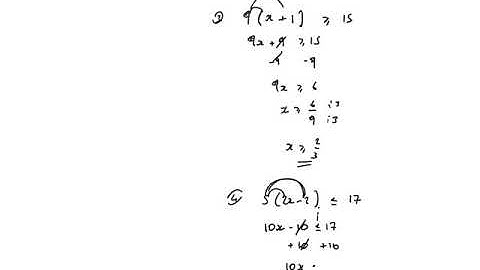 3) 9(x+1) ≥ 15
9x + 9 ≥ 15
-9 -9
9x ≥ 6
x ≥ 6/9 ÷3 ÷3
x ≥ 2/3
4) 5(2x-2) ≤ 17
10x - 10 ≤ 17
+10 +10
10x